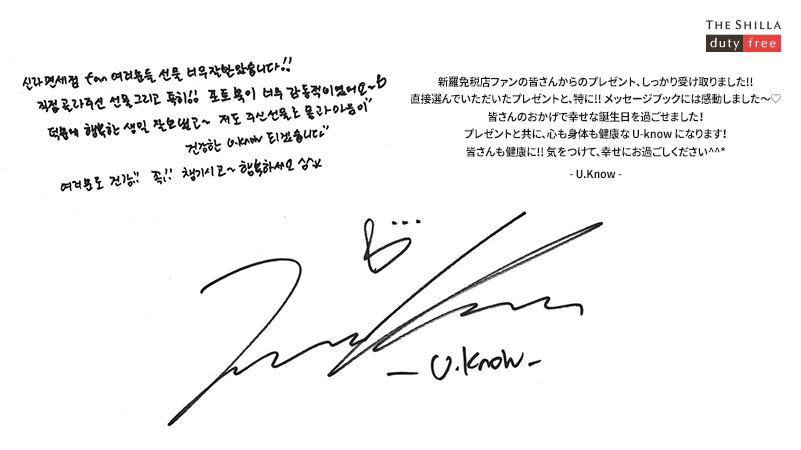 THE SHILLA
duty free
신라면세점 fan 여러분들 선물 너무잘받았습니다!!
직접 골라주신 선물 그리고 특히!! 포토북이 너무 감동적이었어요~
덕분에 행복한 생일 잘보냈고~ 저도 주신선물로 몸과 마음이
건강한 U.Know 되겠습니다
여러분도 건강!! 꼭!! 챙기시고~ 행복하세요 ^^
新羅免税店ファンの皆さんからのプレゼント、しっかり受け取りました!!
直接選んでいただいたプレゼントと、特に!! メッセージブックには感動しました〜♡
皆さんのおかげで幸せな誕生日を過ごせました！
プレゼントと共に、心も身体も健康な U-know になります！
皆さんも健康に!! 気をつけて、幸せにお過ごしください^^*
- U.Know -
- U.Know -